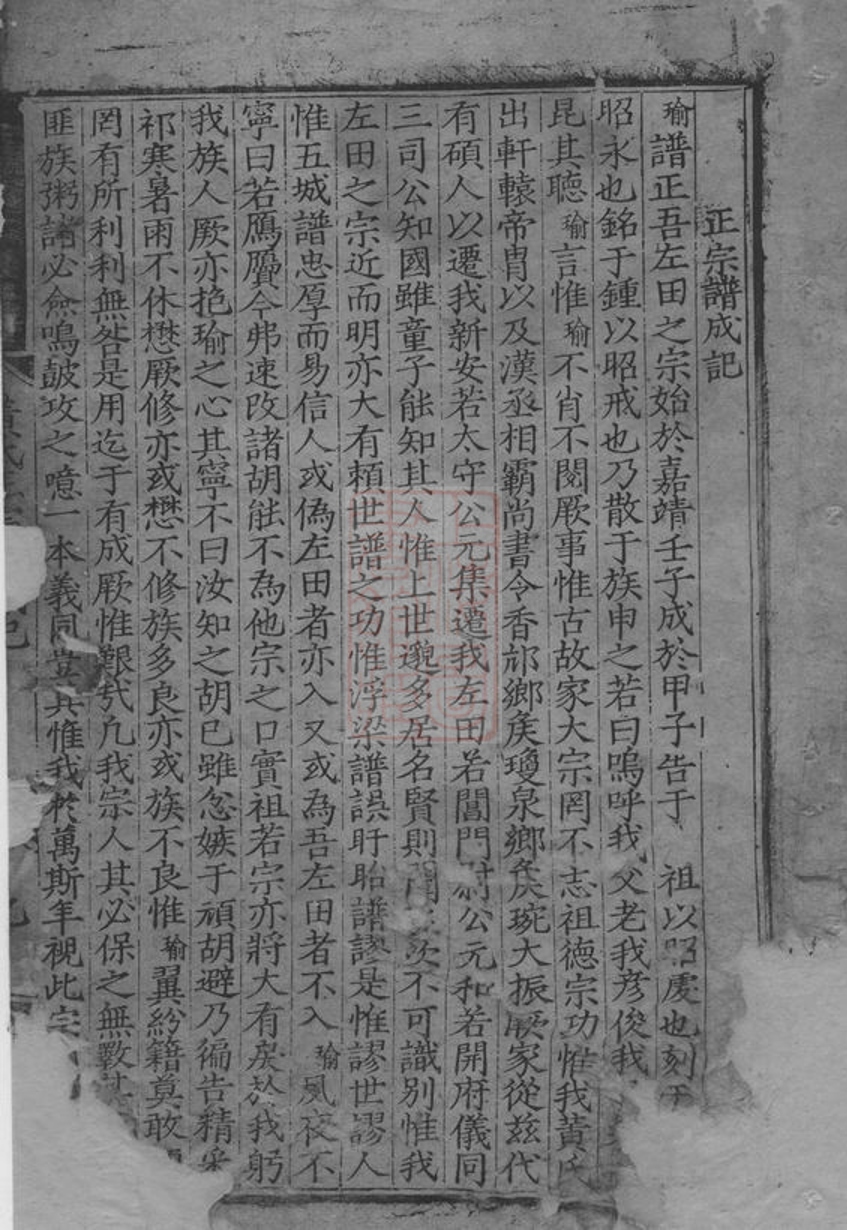 正宗譜成記
瑜譜正吾左田之宗始於嘉靖壬子成於甲子告于 祖以昭虔也刻于
昭永也銘于鍾以昭戒也乃散于族申之若曰嗚呼我父老我彦俊我
昆其聽瑜言惟瑜不肖不閱厥事惟古故家大宗罔不志祖德宗功惟我黃氏
出軒轅帝胄以及漢丞相霸尚書令香邟鄉矦瓊泉鄉矦琬大振厥家從茲代
有碩人以遷我新安若太守公元集遷我左田若閶門尉公元和若開府儀同
三司公知國雖童子能知其人惟上世邈多居名賢則次不可識別惟我
左田之宗近而明亦大有賴世譜之功惟浮梁譜誤盱眙譜謬是惟謬世謬人
惟五城譜忠厚而易信人或偽左田者亦入又或為吾左田者不入瑜夙夜不
寧曰若鴈贗今弗速改諸胡能不為他宗之口實祖若宗亦將大有戾於我躬
我族人厥亦抱瑜之心其寧不曰汝知之胡已雖忿嫉于頑胡避乃徧告精
祁寒暑雨不休懋厥修亦或懋不修族多良亦或族不良惟瑜翼紾籍奠敢
罔有所利利無咎是用迄于有成厥惟艱㢤凡我宗人其必保之無斁
匪族粥諸必僉鳴鼓攻之噫一本義同豈其惟我於萬斯年視此宗